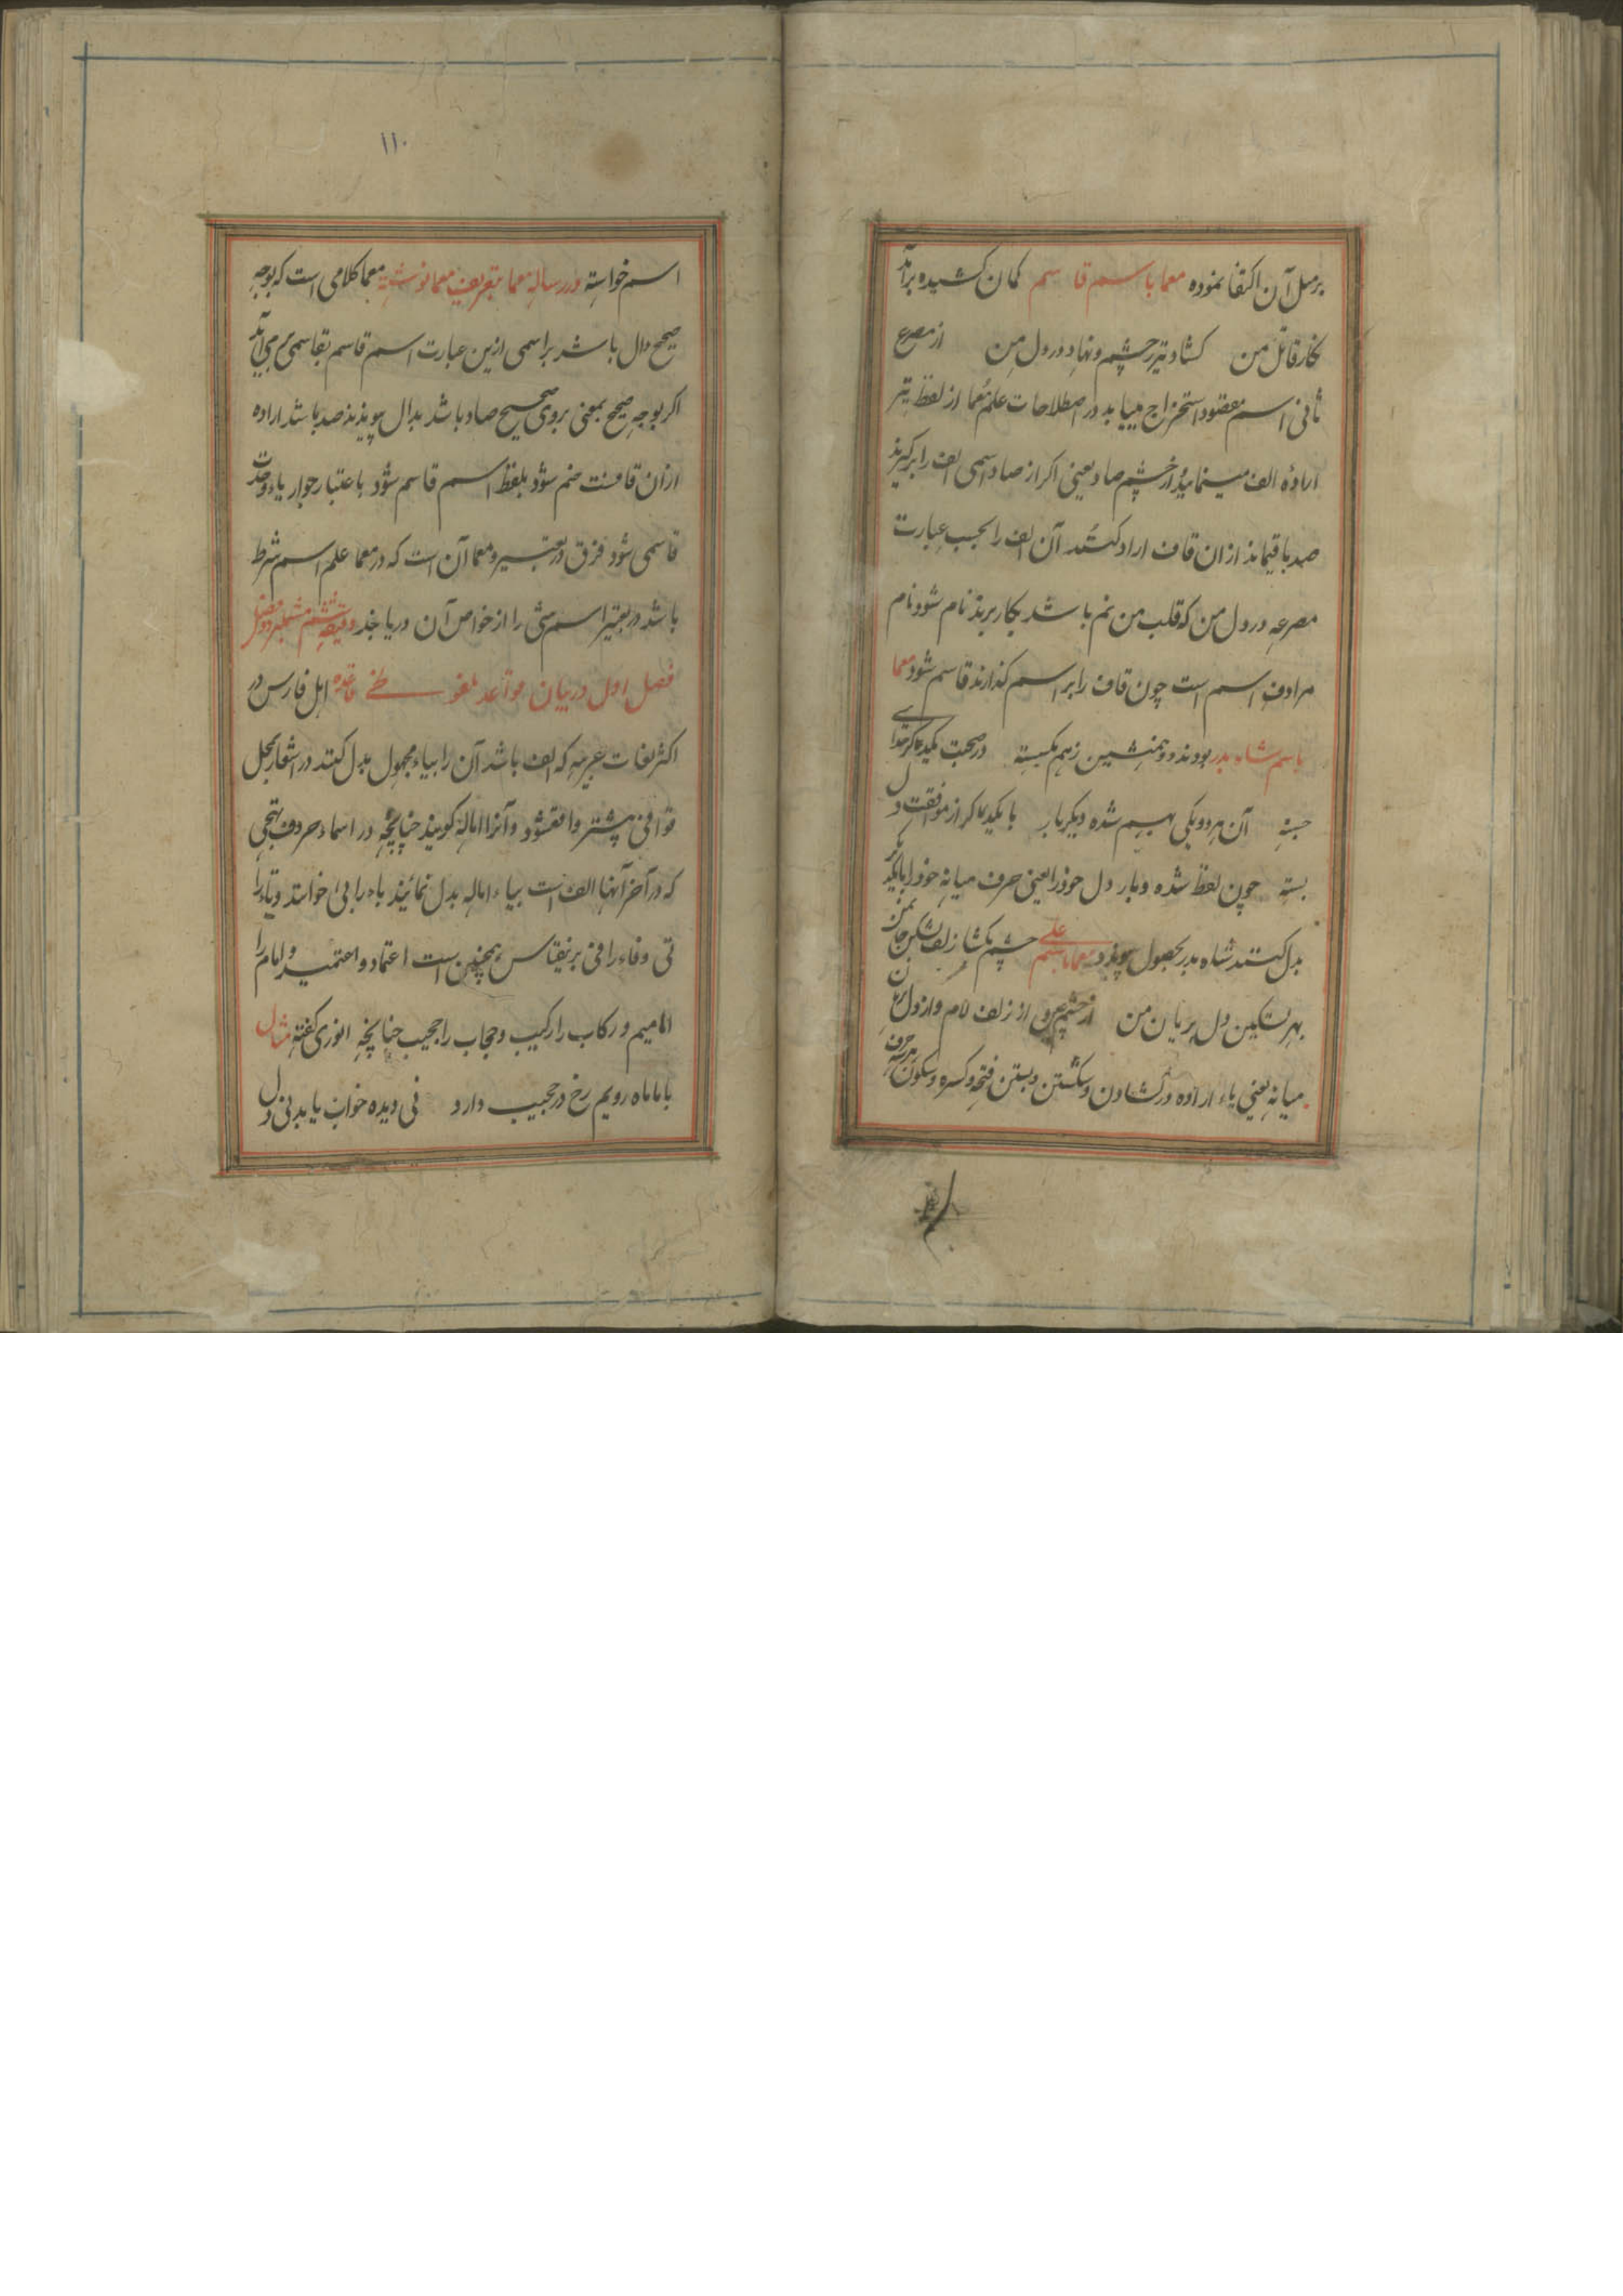 برمل آن اکتفا نموده معما باسم قاسم کمان کشیده برآمد
نگار قاتل من کشاد تیر ز چشم و نهاد در دل من از مصرع
ثانی اسم مقصود استخراج مییابد در اصطلاحات علم معما از لفظ تیر
ارادهٔ الف مینمایند از چشم صاد یعنی اگر از صاد سمی الف را برگیرند
صد باقیماند ازان قاف اراد کنند آن الف را بحسب عبارت
مصرعه در دل من که قلب من نم باشد بکار برند نام شود نام
مرادف اسم است چون قاف را بر اسم گذارند قاسم شود معما
باسم شاه بدر بودند دو همنشین زهم بگسسته در صحبت یکدیگر جدایی
جسته آن هر دو یکی بهم شده دیگر بار با یکدیگر از موافقت دل
بسته چون لفظ شده و بار دل خود را یعنی حرف میانه خود را با یکدیگر
بدل کنند شاه بدر بحصول پیوندد معما باسم علی چشم بگشا زلف بشکن جان من
بهر تسکین دل بریان من از چشم عین از زلف لام و از دل
میانه یعنی یاء اراده در کشادن و شکستن و بستن فتحه و کسره و سکون هر سه حرف
۱۱۰
اسم خواسته در رساله معما بتعریف معما نوشته معما کلامی است که بوجه
صحیح دال باشد بر اسمی ازین عبارت اسم قاسم بقاسمی بر می آید
اگر بوجه صحیح بمعنی بروی صحیح صاد باشد بدال پیوندد صد باشد اراده
ازان قافست ضم شود بلفظ اسم قاسم شود باعتبار جوار یاء وحدت
قاسمی شود فرق در تعبیر و معما آن است که در معما علم اسم شرط
باشد در تعبیر اسم شی را از خواص آن دریابند دقیقه ششم مشتمل بر دو فصل
فصل اول در بیان قواعد قاعده اهل فارس در
اکثر لغات عربیه که الف باشد آن را بیاء مجهول بدل کنند در اشعار بمحل
قوافی بیشتر واقع شود و آنرا اماله گویند چنانچه در اسماء حروف تهجی
که در آخر آنها الف است بیاء اماله بدل نمایند باء را بی خوانند و تاء را
تی و فاء را فی برینقیاس همچنین است اعتماد و اعتمید و امام را
امیم و رکاب را رکیب و حجاب را حجیب چنانچه انوری گفته مثال
با ما ماه رویم رخ در حجیب دارد نی دیده خواب یابد نی دل